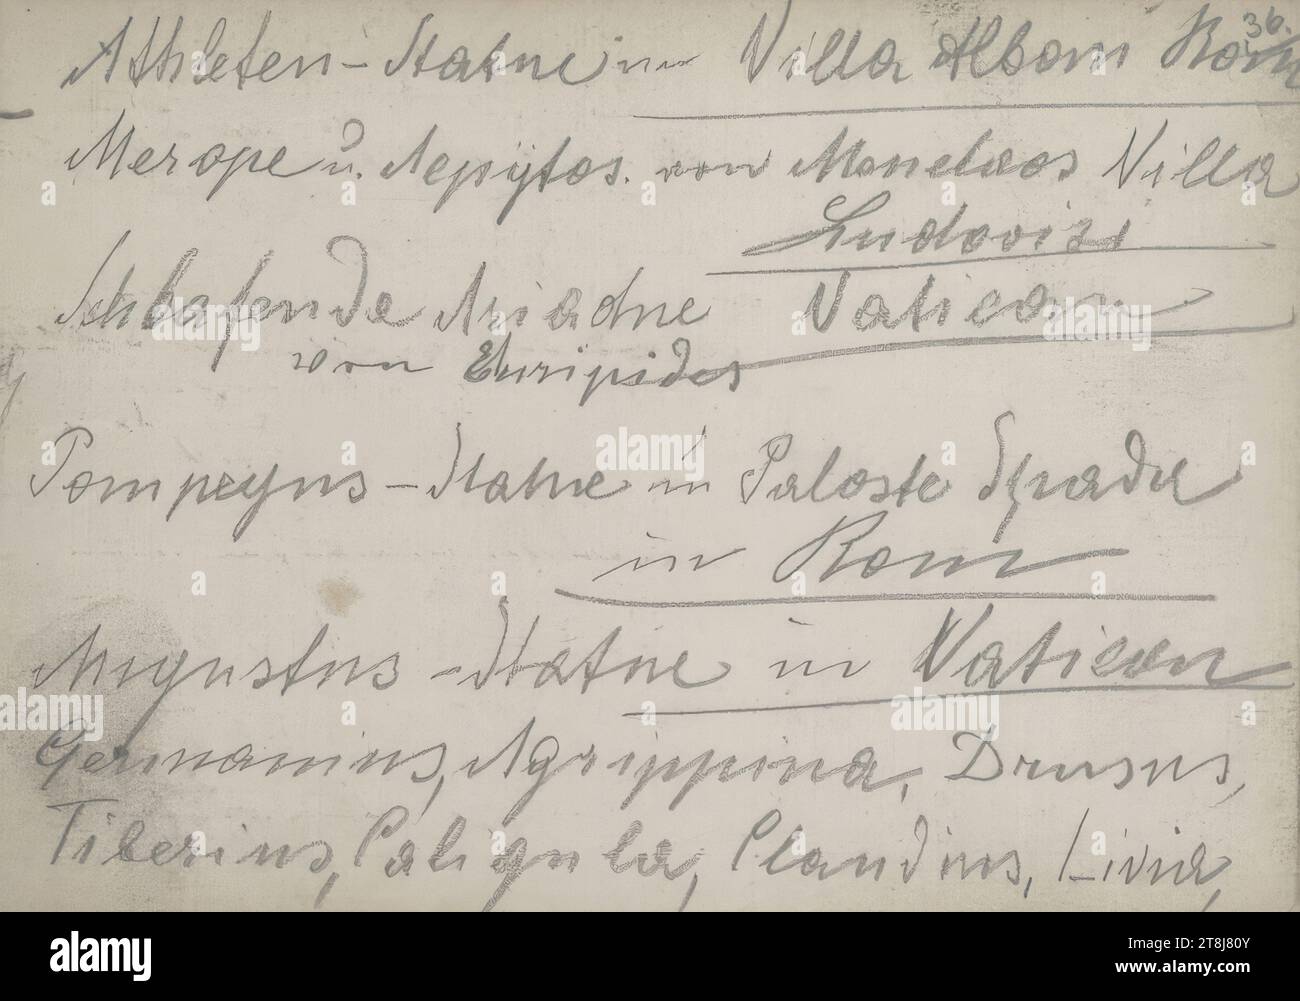 36.
Athleten-Statue in Villa Albani Rom
Merope u. Aepytos. von Menelaos Villa
Ludovisi
Schlafende Ariadne Vatican
von Euripides
Pompeyus-Statue in Palaste Spada
in Rom
Augustus-Statue in Vatican
Germanicus, Agrippina, Drusus,
Tiberius, Caligula, Claudius, Livia,
alamy
Image ID: 2T8J80Y
www.alamy.com